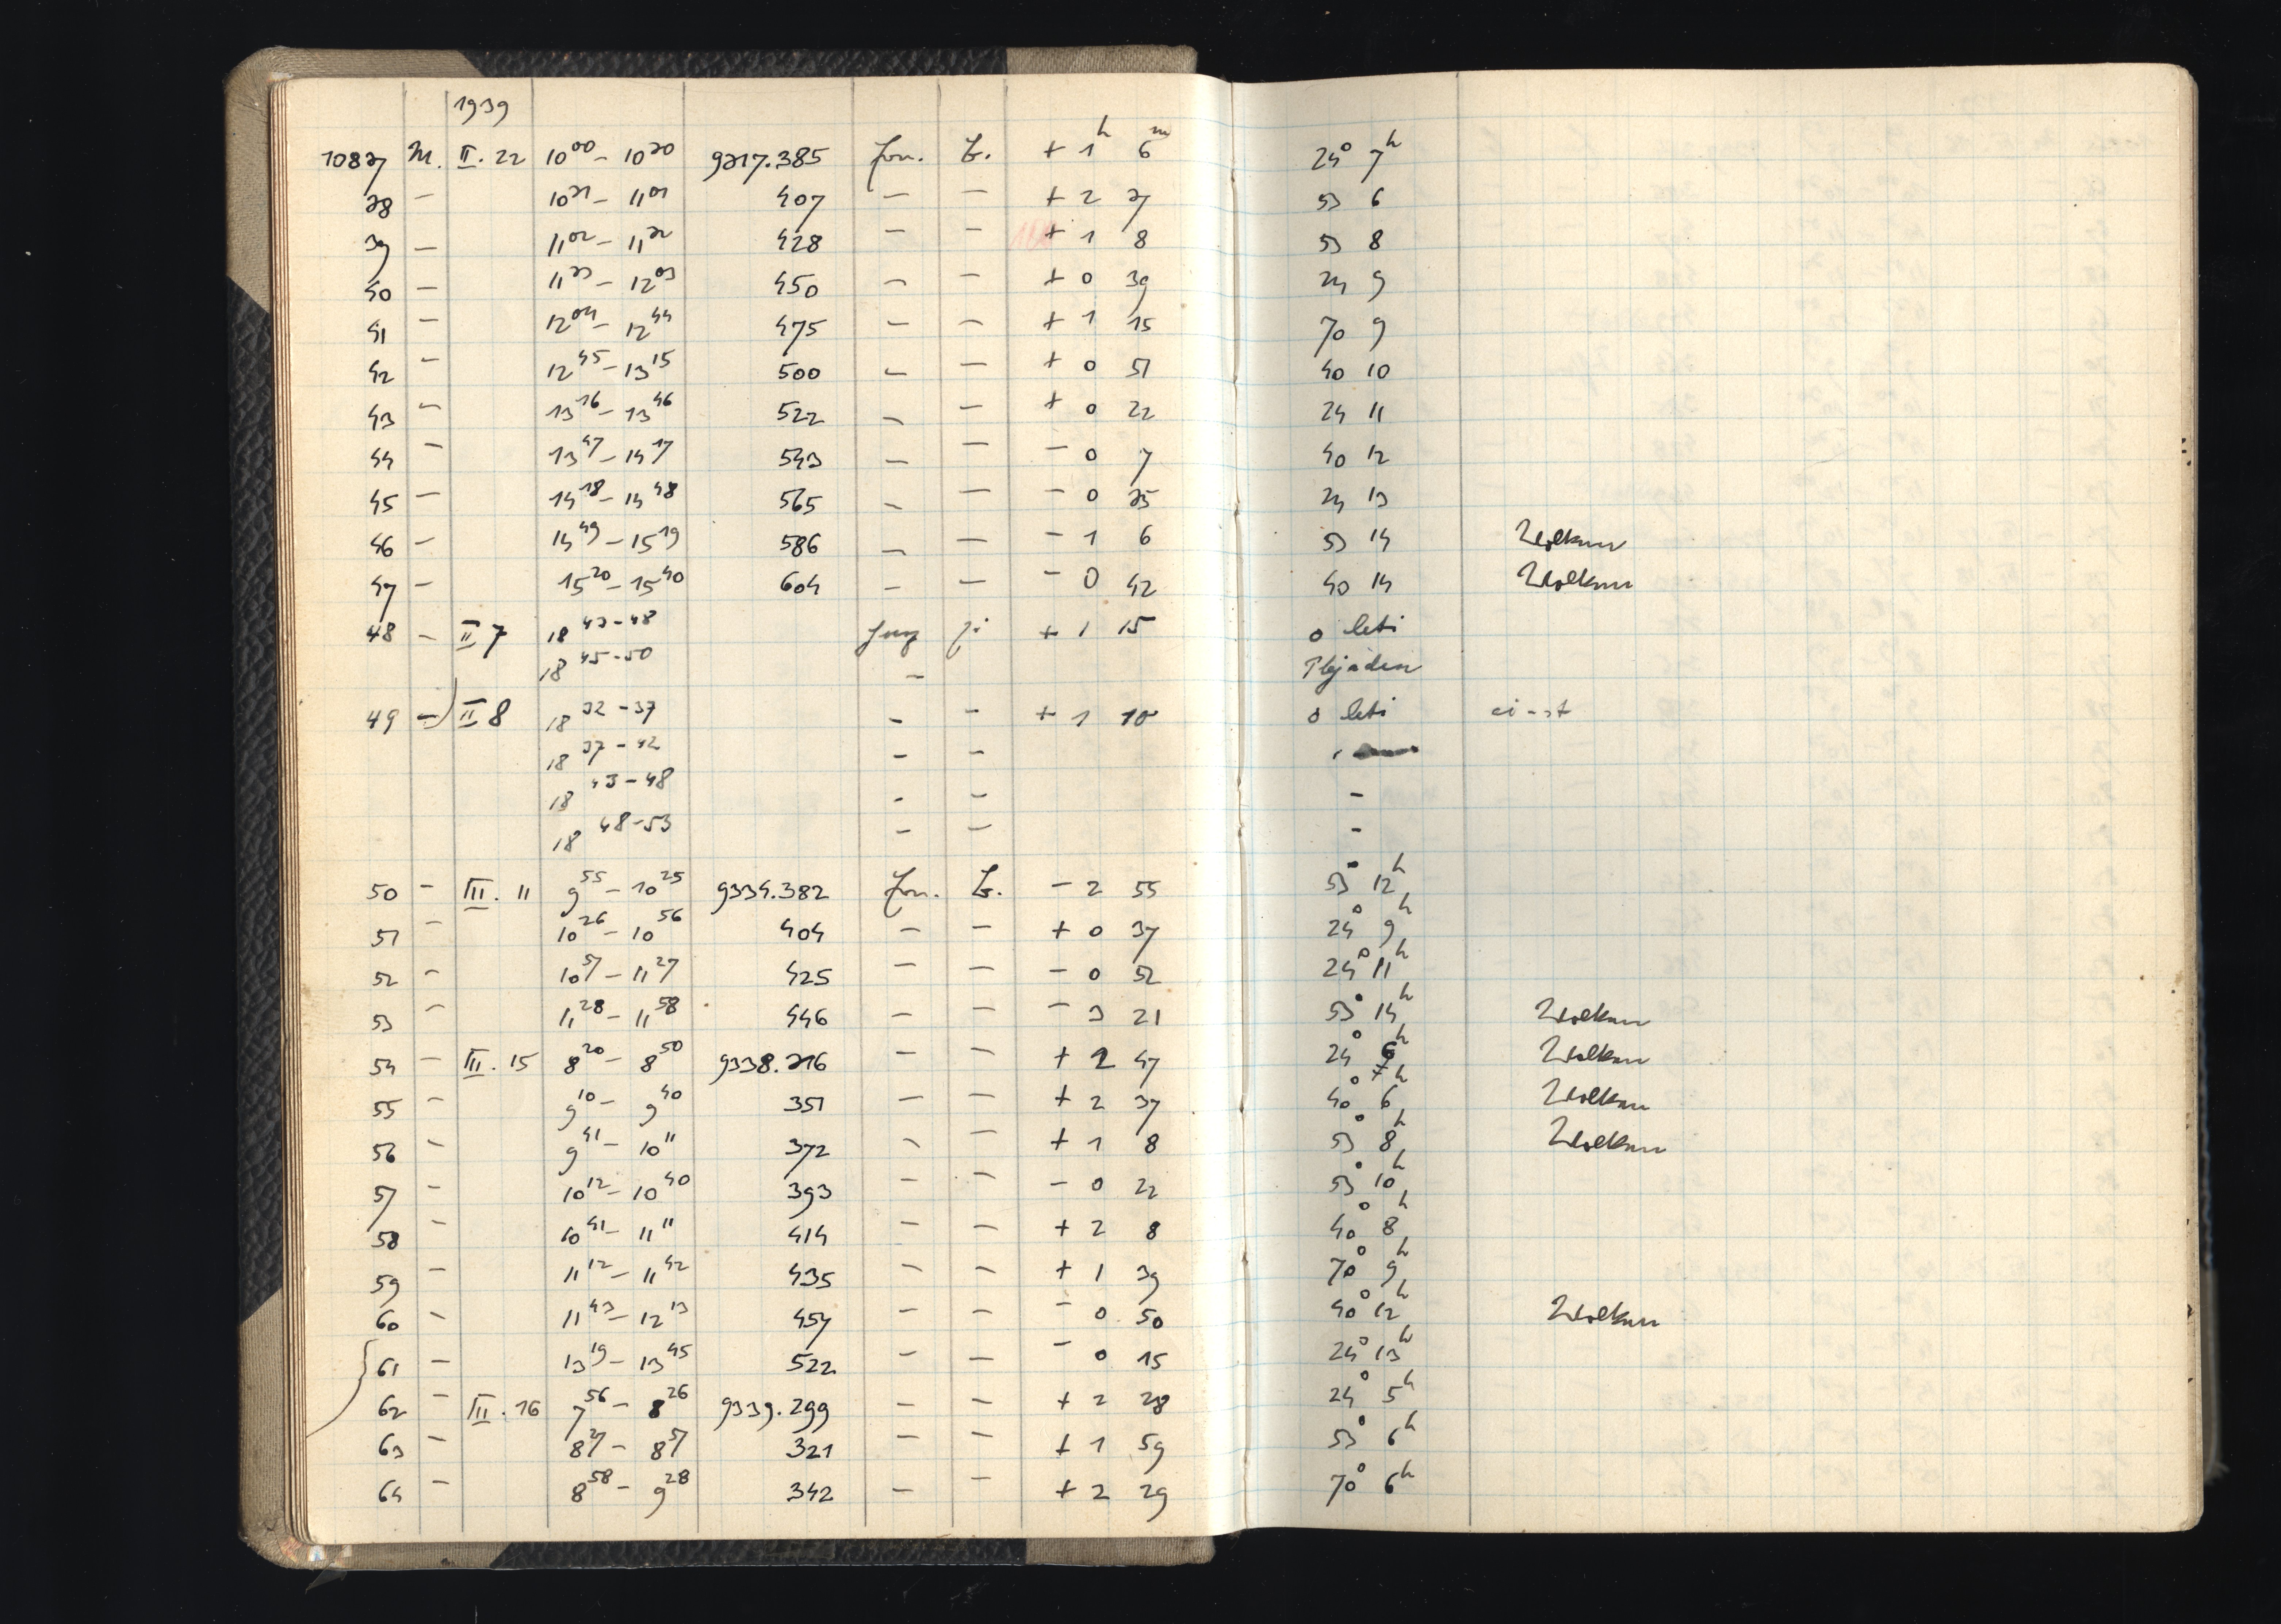 1939
h m
10827 M. II. 22 10 00 – 10 20 9217.385 Zon. Z. + 1 6 24° 7h
28 – 10 21 – 11 01 407 – – + 2 27 53 6
39 – 11 02 – 11 22 428 – – + 1 8 53 8
40 – 11 23 – 12 03 450 – – + 0 39 24 9
41 – 12 04 – 12 44 475 – – + 1 15 70 9
42 – 12 45 – 13 15 500 – – + 0 51 40 10
43 – 13 16 – 13 46 522 – – + 0 22 24 11
44 – 13 47 – 14 17 543 – – – 0 7 40 12
45 – 14 18 – 14 48 565 – – – 0 25 24 13
46 – 14 49 – 15 19 586 – – – 1 6 53 14 Wolken
47 – 15 20 – 15 40 604 – – – 0 42 40 14 Wolken
48 – II 7 18 43 - 48 + 1 15 o Ceti
18 45 - 50 – Plejaden
49 – II 8 18 32 - 37 – – + 1 10 o Ceti
18 37 - 42 – –
18 43 - 48 – – –
18 48 - 53 – – –
50 – III. 11 9 55 – 10 25 9334.382 Zon. Z. – 2 55 53° 12h
51 – 10 26 – 10 56 404 – – + 0 37 24° 9h
52 – 10 57 – 11 27 425 – – – 0 52 24° 11h
53 – 11 28 – 11 58 446 – – – 3 21 53° 14h Wolken
54 – III. 15 8 20 – 8 50 9338.316 – – + 2 47 24° 6h Wolken
55 – 9 10 – 9 40 351 – – + 2 37 40° 6h Wolken
56 – 9 41 – 10 11 372 – – + 1 8 53° 8h Wolken
57 – 10 12 – 10 40 393 – – – 0 22 53° 10h
58 – 10 41 – 11 11 414 – – + 2 8 40° 8h
59 – 11 12 – 11 42 435 – – + 1 39 70° 9h
60 – 11 43 – 12 13 457 – – – 0 50 40° 12h Wolken
61 – 13 19 – 13 45 522 – – – 0 15 24° 13h
62 – III. 16 7 56 – 8 26 9339.299 – – + 2 28 24° 5h
63 – 8 27 – 8 57 321 – – + 1 59 53° 6h
64 – 8 58 – 9 28 342 – – + 2 29 70° 6h